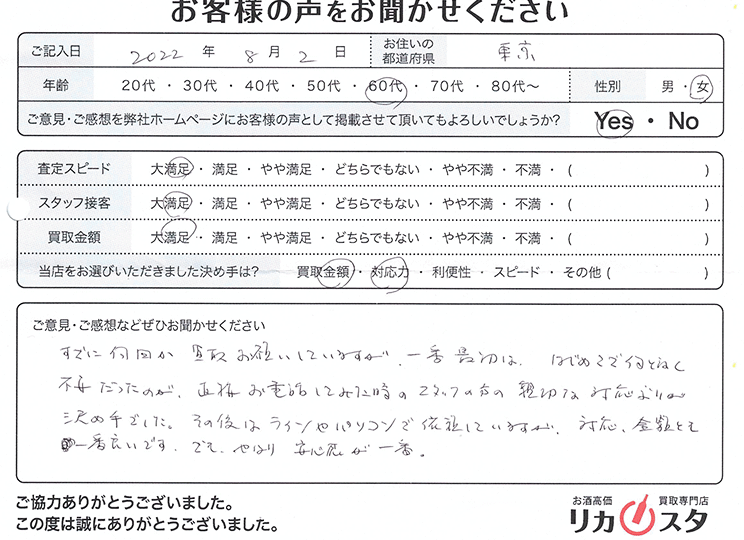 お客様の声をお聞かせください
ご記入日 2022 年 8 月 2 日 お住いの都道府県 東京
年齢 20代 ・ 30代 ・ 40代 ・ 50代 ・ 60代 ・ 70代 ・ 80代〜 性別 男 ・ 女
ご意見・ご感想を弊社ホームページにお客様の声として掲載させて頂いてもよろしいでしょうか? Yes ・ No
査定スピード 大満足 ・ 満足 ・ やや満足 ・ どちらでもない ・ やや不満 ・ 不満 ・ ( )
スタッフ接客 大満足 ・ 満足 ・ やや満足 ・ どちらでもない ・ やや不満 ・ 不満 ・ ( )
買取金額 大満足 ・ 満足 ・ やや満足 ・ どちらでもない ・ やや不満 ・ 不満 ・ ( )
当店をお選びいただきました決め手は? 買取金額 ・ 対応力 ・ 利便性 ・ スピード ・ その他 ( )
ご意見・ご感想などぜひお聞かせください
すでに何回か買取お願いしていますが、一番最初は、はじめてで何となく
不安だったのが、直接お電話してみた時のスタッフの方の親切な対応ぶりが
決め手でした。その後はラインやパソコンで依頼していますが、対応、金額とも
一番良いです。でも、やはり安心感が一番。
ご協力ありがとうございました。
この度は誠にありがとうございました。
お酒高価 買取専門店
リカスタ